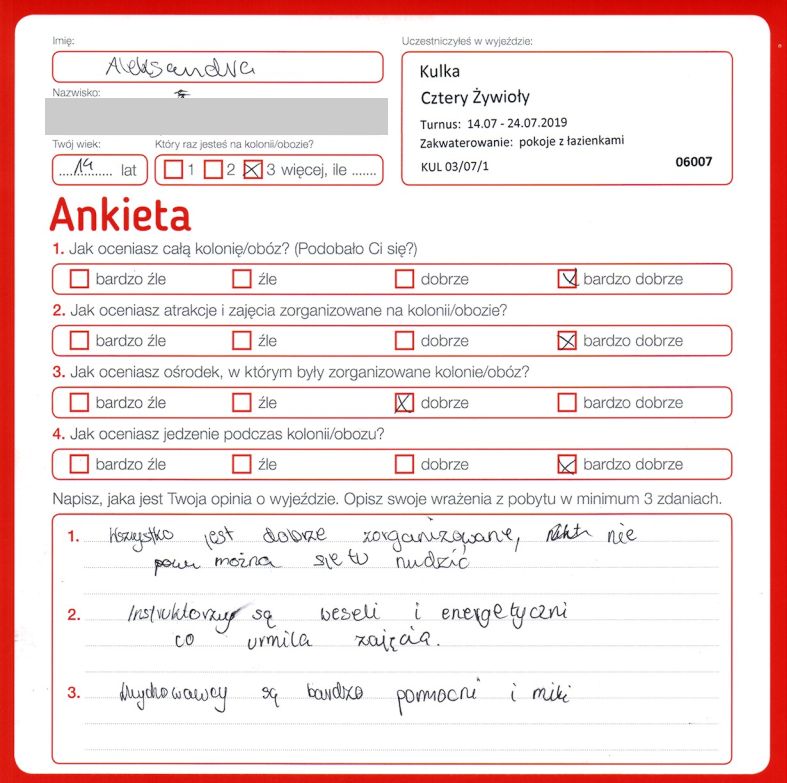 Imię:
Aleksandra
Nazwisko:
Twój wiek:
14 lat
Który raz jesteś na kolonii/obozie?
1 2 3 więcej, ile .......
Uczestniczyłeś w wyjeździe:
Kulka
Cztery Żywioły
Turnus: 14.07 - 24.07.2019
Zakwaterowanie: pokoje z łazienkami
KUL 03/07/1 06007
Ankieta
1. Jak oceniasz całą kolonię/obóz? (Podobało Ci się?)
bardzo źle źle dobrze bardzo dobrze
2. Jak oceniasz atrakcje i zajęcia zorganizowane na kolonii/obozie?
bardzo źle źle dobrze bardzo dobrze
3. Jak oceniasz ośrodek, w którym były zorganizowane kolonie/obóz?
bardzo źle źle dobrze bardzo dobrze
4. Jak oceniasz jedzenie podczas kolonii/obozu?
bardzo źle źle dobrze bardzo dobrze
Napisz, jaka jest Twoja opinia o wyjeździe. Opisz swoje wrażenia z pobytu w minimum 3 zdaniach.
1. Wszystko jest dobrze zorganizowane, nie
można się tu nudzić
2. Instruktorzy są weseli i energetyczni
co urmila zajęcia.
3. Wychowawcy są bardzo pomocni i mili